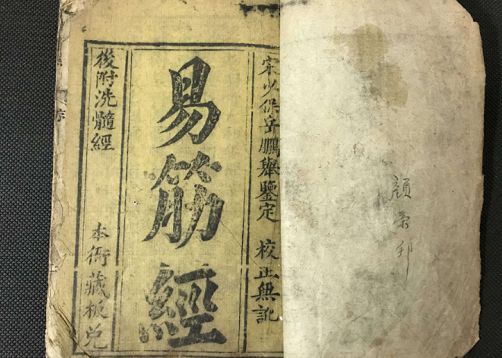 宋少保岳鵬舉鑒定 校正無訛
易筋經
後附洗髓經
本衙藏板